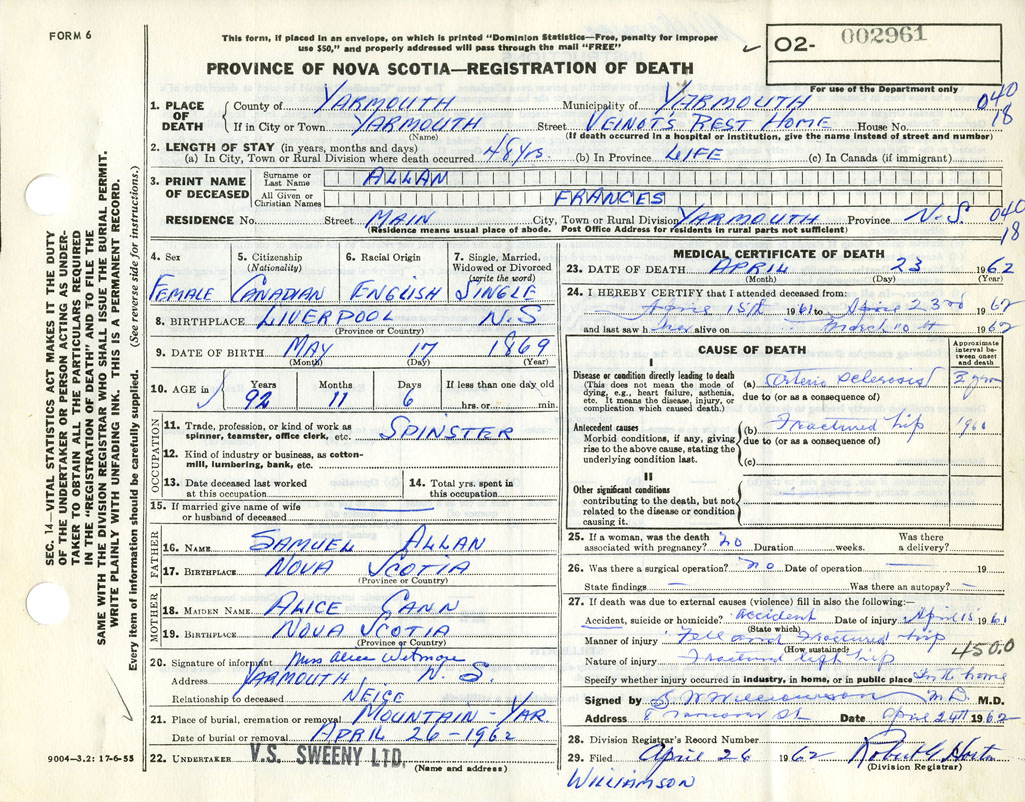 FORM 6
This form, if placed in an envelope, on which is printed "Dominion Statistics—Free, penalty for improper
use $50," and properly addressed will pass through the mail "FREE"
O2- 002961
PROVINCE OF NOVA SCOTIA—REGISTRATION OF DEATH
For use of the Department only
1. PLACE OF DEATH
County of YARMOUTH Municipality of YARMOUTH 040
If in City or Town YARMOUTH Street VEINOT'S REST HOME House No. 18
(Name) (If death occurred in a hospital or institution, give the name instead of street and number)
2. LENGTH OF STAY (in years, months and days)
(a) In City, Town or Rural Division where death occurred 48 yrs. (b) In Province LIFE (c) In Canada (if immigrant)
3. PRINT NAME OF DECEASED
Surname or Last Name ALLAN
All Given or Christian Names FRANCES
RESIDENCE No. Street MAIN City, Town or Rural Division YARMOUTH Province N.S. 040
(Residence means usual place of abode. Post Office Address for residents in rural parts not sufficient) 18
4. Sex 5. Citizenship (Nationality) 6. Racial Origin 7. Single, Married, Widowed or Divorced (write the word)
FEMALE CANADIAN ENGLISH SINGLE
8. BIRTHPLACE LIVERPOOL N.S
(Province or Country)
9. DATE OF BIRTH MAY 17 1869
(Month) (Day) (Year)
10. AGE in Years Months Days If less than one day old
92 11 6 hrs. or min.
OCCUPATION
11. Trade, profession, or kind of work as
spinner, teamster, office clerk, etc. SPINSTER
12. Kind of industry or business, as cotton-
mill, lumbering, bank, etc.
13. Date deceased last worked
at this occupation
14. Total yrs. spent in
this occupation
15. If married give name of wife
or husband of deceased
FATHER
16. NAME SAMUEL ALLAN
17. BIRTHPLACE NOVA SCOTIA
(Province or Country)
MOTHER
18. MAIDEN NAME ALICE CANN
19. BIRTHPLACE NOVA SCOTIA
(Province or Country)
20. Signature of informant Miss Alice Wetmore
Address YARMOUTH N.S.
Relationship to deceased NEICE
21. Place of burial, cremation or removal MOUNTAIN - YAR.
Date of burial or removal APRIL 26 - 1962
22. UNDERTAKER V.S. SWEENY LTD.
(Name and address)
MEDICAL CERTIFICATE OF DEATH
23. DATE OF DEATH APRIL 23 1962
(Month) (Day) (Year)
24. I HEREBY CERTIFY that I attended deceased from:
April 15th 1961 to April 23rd 1962
and last saw her alive on March 10th 1962
CAUSE OF DEATH
Approximate interval between onset and death
I
Disease or condition directly leading to death
(This does not mean the mode of
dying, e.g., heart failure, asthenia,
etc. It means the disease, injury, or
complication which caused death.)
(a) Arterio sclerosis
due to (or as a consequence of)
Antecedent causes
Morbid conditions, if any, giving
rise to the above cause, stating the
underlying condition last.
(b) Fractured hip
due to (or as a consequence of)
(c)
II
Other significant conditions
contributing to the death, but not
related to the disease or condition
causing it.
25. If a woman, was the death
associated with pregnancy? no Duration weeks. Was there
a delivery?
26. Was there a surgical operation? no Date of operation 19
State findings Was there an autopsy?
27. If death was due to external causes (violence) fill in also the following:—
Accident, suicide or homicide? accident Date of injury April 15 1961
(State which)
Manner of injury Fell and fractured hip
(How sustained) 450.0
Nature of injury Fractured left hip
Specify whether injury occurred in industry, in home, or in public place In the home
Signed by S W Williamson M.D. M.D.
Address St Date April 24th 1962
28. Division Registrar's Record Number
29. Filed April 26 1962 Robert G Horton
(Division Registrar)
WILLIAMSON
SEC. 14—VITAL STATISTICS ACT MAKES IT THE DUTY
OF THE UNDERTAKER OR PERSON ACTING AS UNDER-
TAKER TO OBTAIN ALL THE PARTICULARS REQUIRED
IN THE "REGISTRATION OF DEATH" AND TO FILE THE
SAME WITH THE DIVISION REGISTRAR WHO SHALL ISSUE THE BURIAL PERMIT.
WRITE PLAINLY WITH UNFADING INK. THIS IS A PERMANENT RECORD.
Every item of information should be carefully supplied. (See reverse side for instructions.)
9004—3.2: 17-6-55